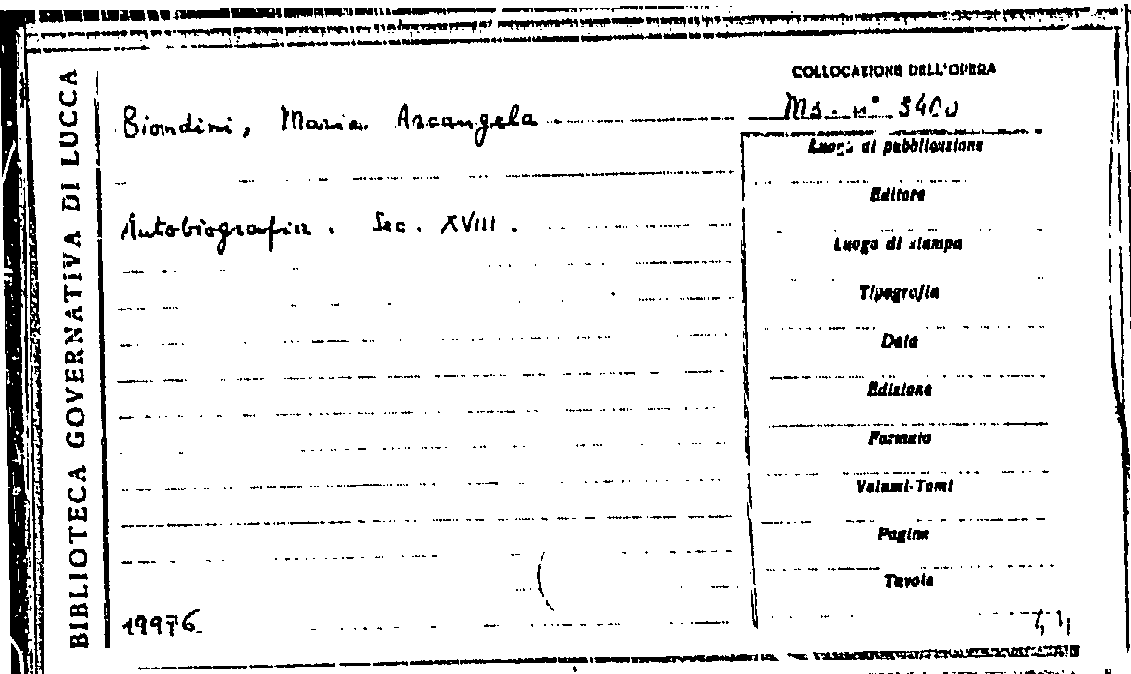 BIBLIOTECA GOVERNATIVA DI LUCCA
COLLOCAZIONE DELL'OPERA
Biondini, Maria Arcangela
Ms. n° 3400
Luogo di pubblicazione
Editore
Autobiografia. Sec. XVIII.
Luogo di stampa
Tipografia
Data
Edizione
Formato
Volumi-Tomi
Pagine
Tavole
19976